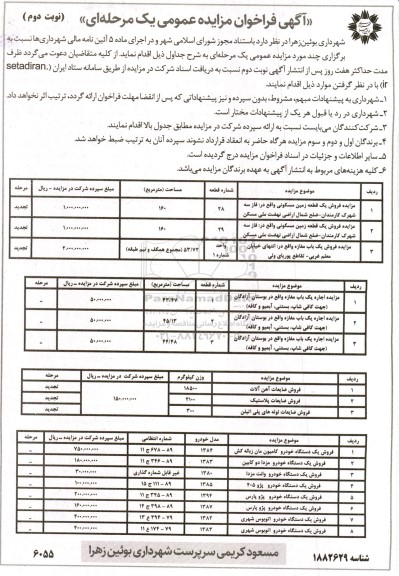 «آگهی فراخوان مزایده عمومی یک مرحله‌ای» (نوبت دوم)
شهرداری بوئین‌زهرا در نظر دارد باستناد مجوز شورای اسلامی شهر و در اجرای ماده ۵ آئین نامه مالی شهرداری‌ها نسبت به
برگزاری چند مورد مزایده عمومی یک مرحله‌ای به شرح جداول ذیل اقدام نماید. از کلیه متقاضیان دعوت می‌گردد ظرف
مدت حداکثر هفت روز پس از انتشار آگهی نوبت دوم نسبت به دریافت اسناد شرکت در مزایده از طریق سامانه ستاد ایران (setadiran.
ir) با در نظر گرفتن موارد ذیل اقدام نمایند.
۱_شهرداری به پیشنهادات مبهم، مشروط، بدون سپرده و نیز پیشنهاداتی که پس از انقضا مهلت فراخوان ارائه گردد، ترتیب اثر نخواهد داد.
۲_شهرداری در رد یا قبول هر یک از پیشنهادات مختار است.
۳_شرکت‌کنندگان می‌بایست نسبت به ارائه سپرده شرکت در مزایده مطابق جدول بالا اقدام نمایند.
۴_برندگان اول و دوم و سوم مزایده هرگاه حاضر به انعقاد قرارداد نشوند سپرده آنان به ترتیب ضبط خواهد شد.
۵_سایر اطلاعات و جزئیات در اسناد فراخوان مزایده درج گردیده است.
۶_کلیه هزینه‌های مربوط به انتشار آگهی به عهده برندگان مزایده می‌باشد.
ردیف موضوع مزایده شماره قطعه مساحت (مترمربع) مبلغ سپرده شرکت در مزایده _ ریال مرحله
۱ مزایده فروش یک قطعه زمین مسکونی واقع در: فاز سه شهرک کارمندان-ضلع شمال اراضی نهضت ملی مسکن ۲۸ ۱۶۰ ۱,۰۰۰,۰۰۰,۰۰۰ تجدید
۲ مزایده فروش یک قطعه زمین مسکونی واقع در: فاز سه شهرک کارمندان-ضلع شمال اراضی نهضت ملی مسکن ۲۹ ۱۶۰ ۱,۰۰۰,۰۰۰,۰۰۰ تجدید
۳ مزایده فروش یک باب مغازه واقع در: انتهای خیابان معلم غربی- تقاطع پوریای ولی واحد شماره ۱ ۵۳/۷۲ (مجموع همکف و نیم طبقه) ۲,۰۰۰,۰۰۰,۰۰۰ تجدید
ردیف موضوع مزایده شماره قطعه مساحت (مترمربع) مبلغ سپرده شرکت در مزایده _ ریال مرحله
۱ مزایده اجاره یک باب مغازه واقع در بوستان آزادگان (جهت کافی شاپ، بستنی، آبمیو و کافه) ۵۰,۰۰۰,۰۰۰ _
۲ مزایده اجاره یک باب مغازه واقع در بوستان آزادگان (جهت کافی شاپ، بستنی، آبمیو و کافه) ۵۰,۰۰۰,۰۰۰ _
۳ مزایده اجاره یک باب مغازه واقع در بوستان آزادگان (جهت کافی شاپ، بستنی، آبمیو و کافه) ۵۰,۰۰۰,۰۰۰ _
ردیف موضوع مزایده وزن کیلوگرم مبلغ سپرده شرکت در مزایده _ ریال مرحله
۱ فروش ضایعات آهن آلات ۱۸۵۰۰ ۱۵۰,۰۰۰,۰۰۰ تجدید
۲ فروش ضایعات پلاستیک ۲۱۰۰ تجدید
۳ فروش ضایعات لوله های پلی اتیلن ۳۰۰ تجدید
ردیف موضوع مزایده مدل خودرو شماره انتظامی مبلغ سپرده شرکت در مزایده _ ریال مرحله
۱ فروش یک دستگاه خودرو کامیون مان زباله کش ۱۳۸۴ ۷۵۰,۰۰۰,۰۰۰ _
۲ فروش یک دستگاه خودرو مزدا دو کابین ۱۳۸۳ ۱۸۰,۰۰۰,۰۰۰ _
۳ فروش یک دستگاه خودرو وانت مزدا ۱۳۸۰ غیر قابل شماره گذاری ۳۰,۰۰۰,۰۰۰ _
۴ فروش یک دستگاه خودرو پژو ۴۰۵ ۱۳۸۵ ۱۰۰,۰۰۰,۰۰۰ _
۵ فروش یک دستگاه خودرو پژو پارس ۲۰۰,۰۰۰,۰۰۰ _
۶ فروش یک دستگاه خودرو پژو پارس ۱۳۸۷ ۱۶۰,۰۰۰,۰۰۰ _
۷ فروش یک دستگاه خودرو اتوبوس شهری ۱۳۸۲ ۴۰۰,۰۰۰,۰۰۰ _
۸ فروش یک دستگاه خودرو اتوبوس شهری ۱۳۸۳ ۴۰۰,۰۰۰,۰۰۰ _
شناسه ۱۸۸۲۶۲۹ مسعود کریمی سرپرست شهرداری بوئین زهرا ۶۰۵۵